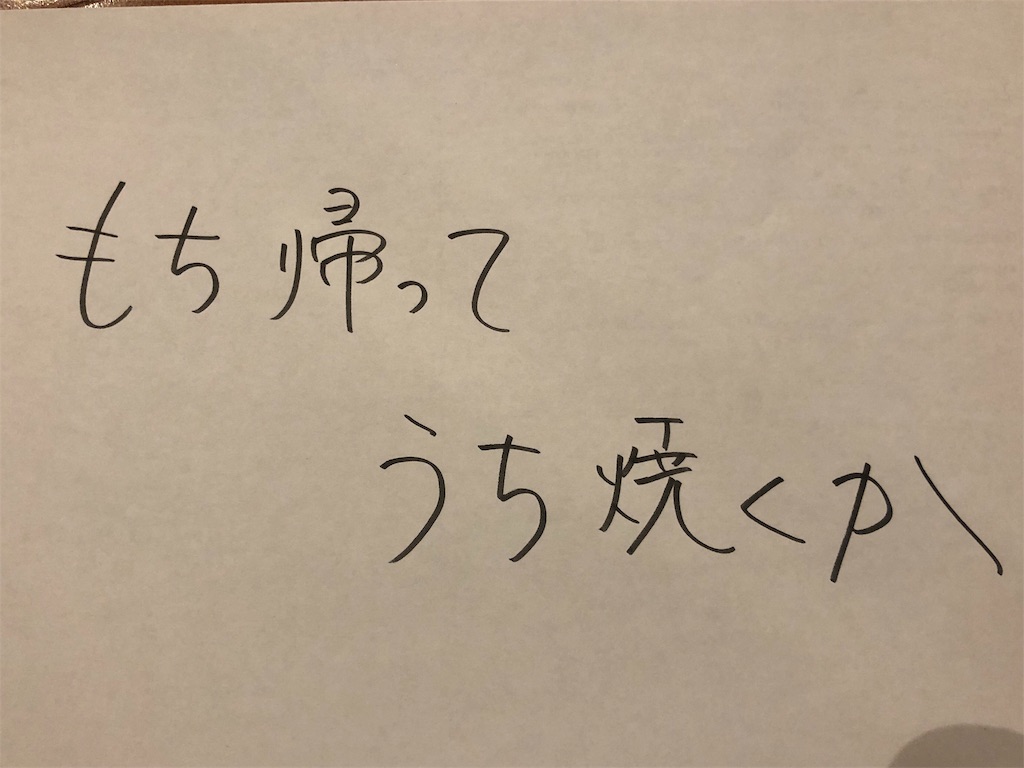 もち帰って
うち焼くか